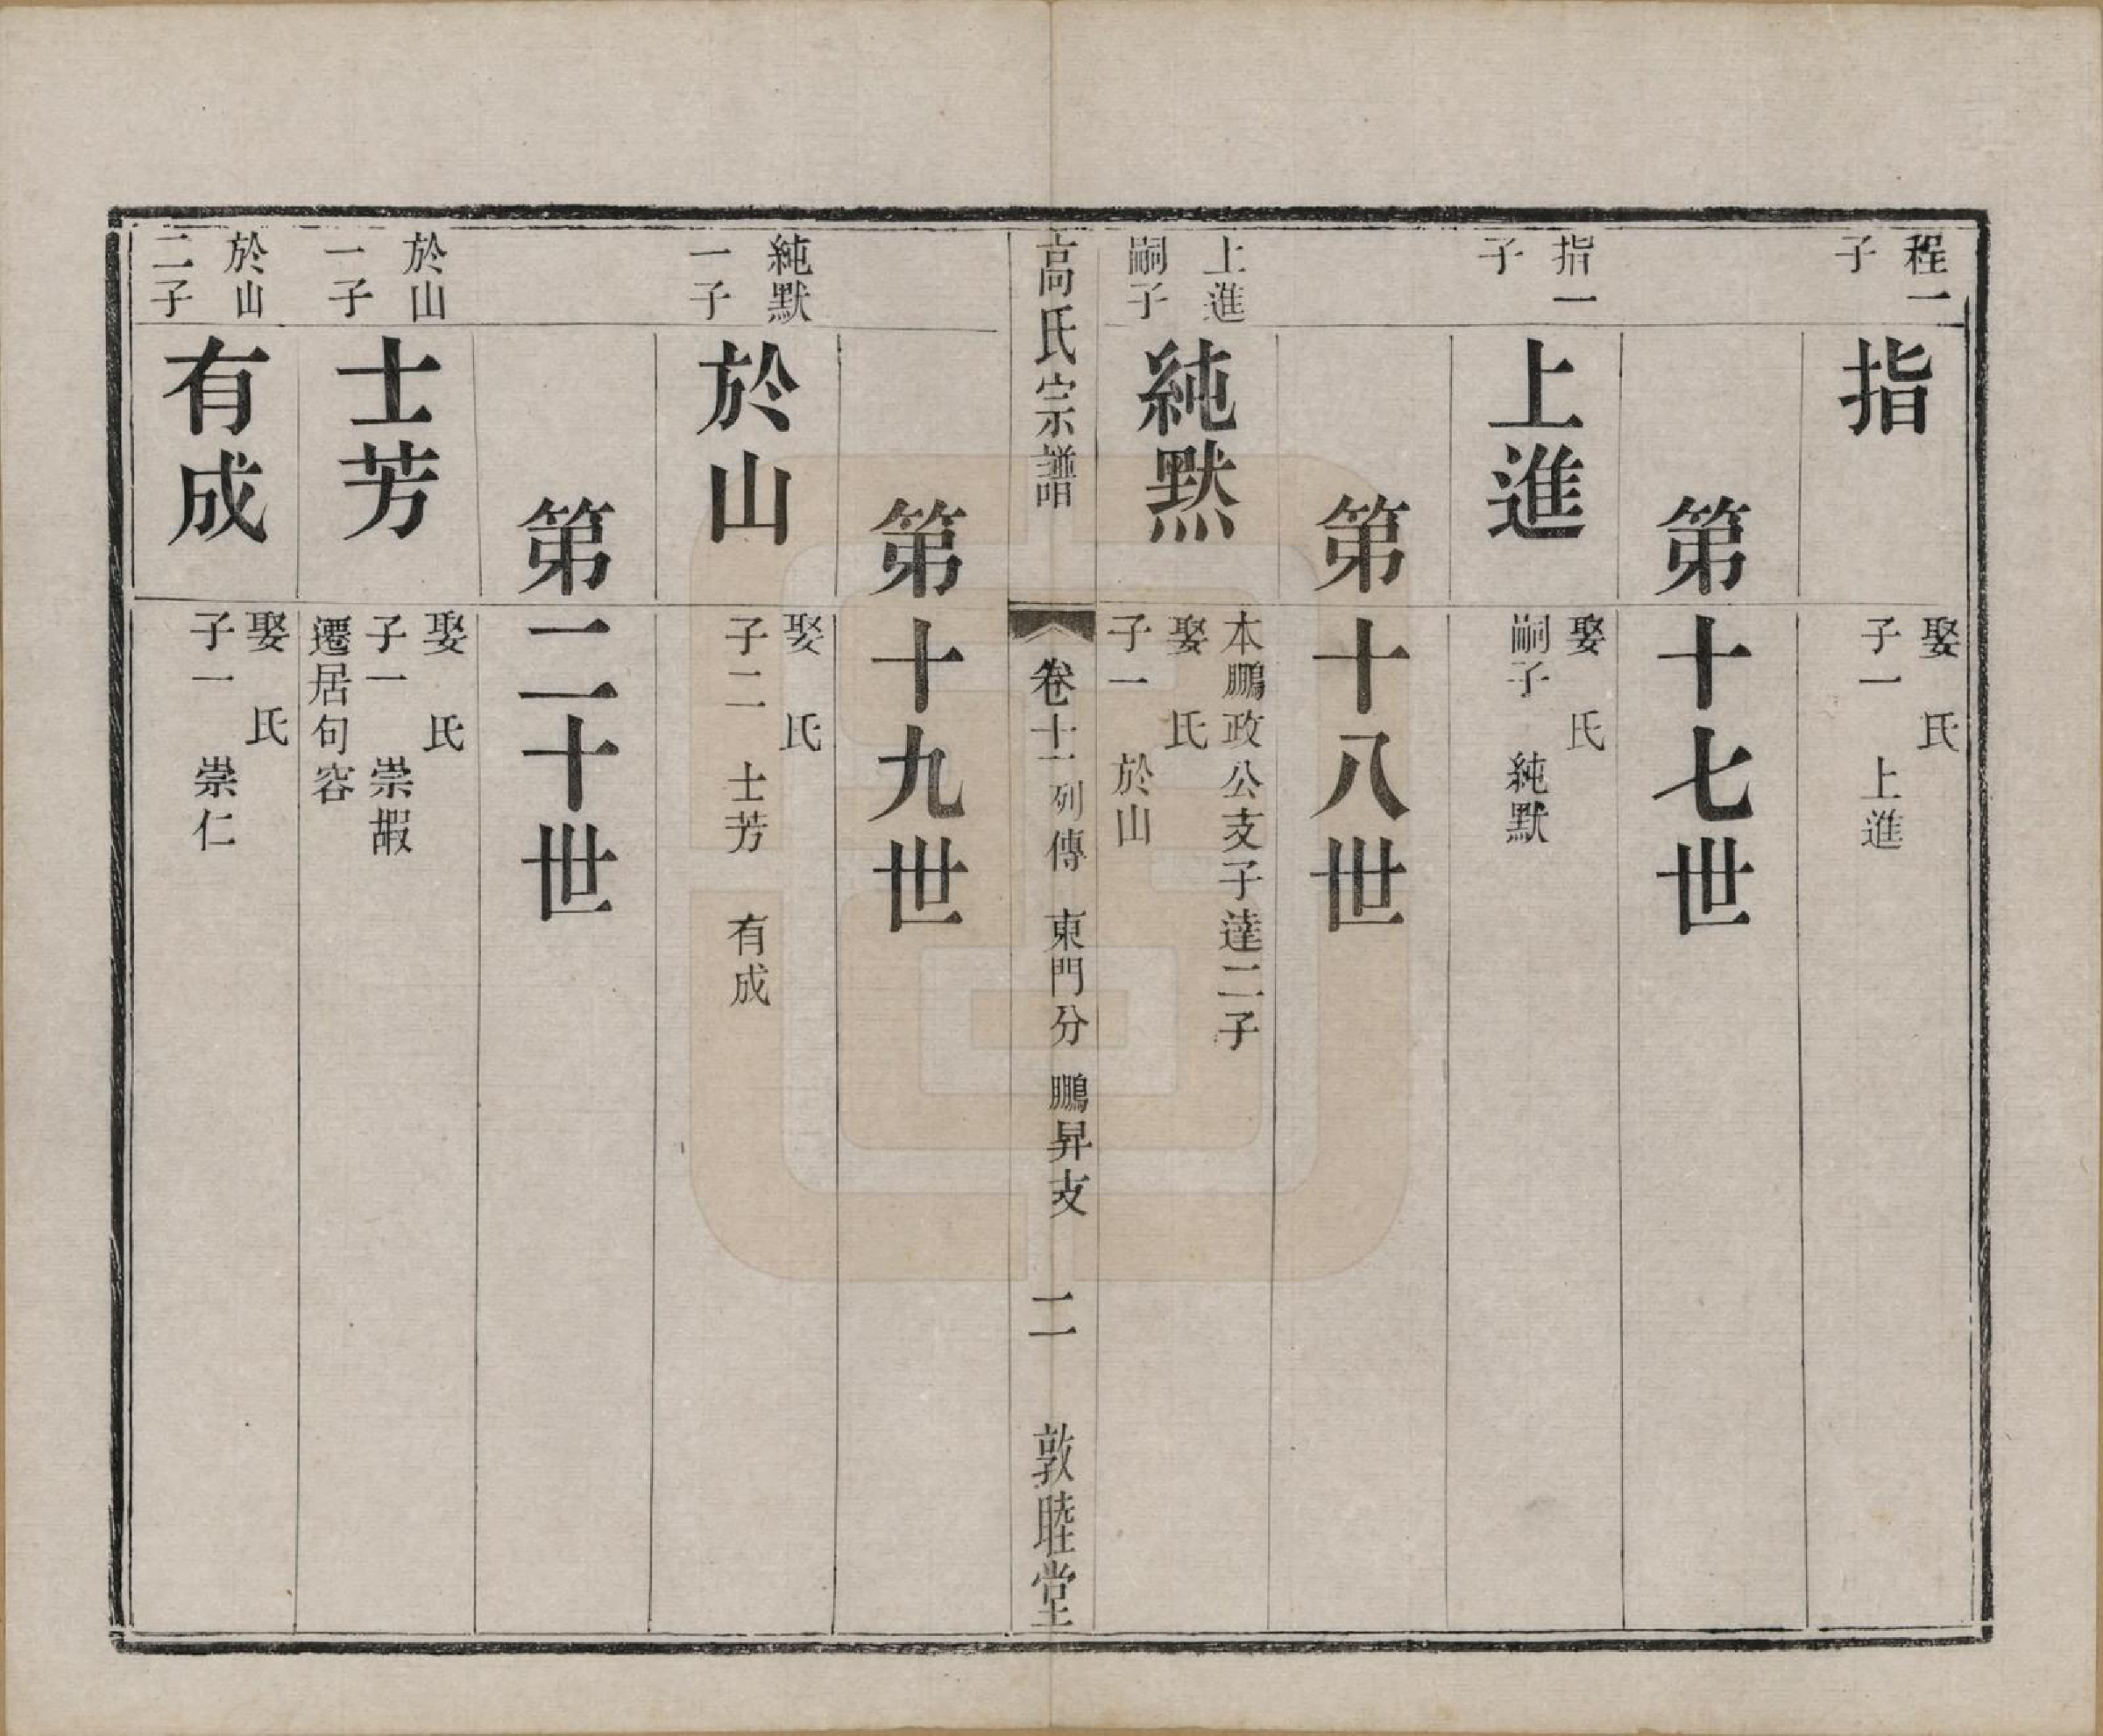 程一
子
指
娶　氏
子一　上進
第十七世
指一
子
上進
娶　氏
嗣子　純默
第十八世
上進
嗣子
純默
本鵬政公支子達二子
娶　氏
子一　於山
高氏宗譜
卷十一列傳　東門分　鵬昇支
二
敦睦堂
第十九世
純默
一子
於山
娶　氏
子二　士芳　有成
第二十世
於山
一子
士芳
娶　氏
子一　崇嘏
遷居句容
於山
二子
有成
娶　氏
子一　崇仁